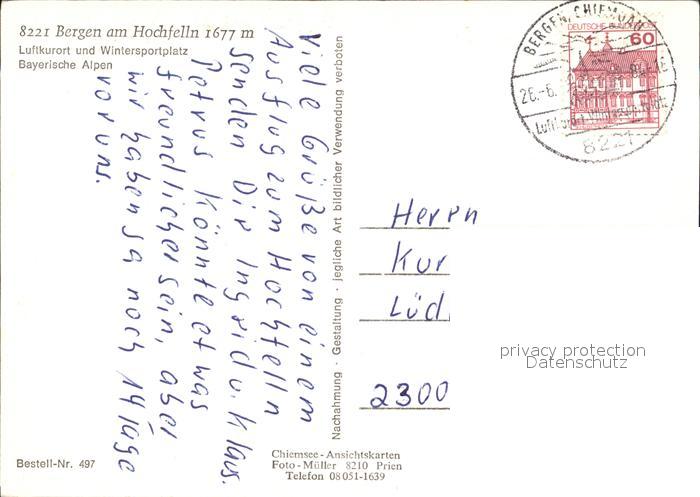 8221 Bergen am Hochfelln 1677 m
Luftkurort und Wintersportplatz
Bayerische Alpen
Viele Grüße von einem
Ausflug zum Hochfelln
senden Dir Ingrid u. Klaus.
Petrus könnte etwas
freundlicher sein, aber
wir haben ja noch 14 Tage
vor uns.
Bestell-Nr. 497
Nachahmung · Gestaltung · jegliche Art bildlicher Verwendung verboten
Chiemsee-Ansichtskarten
Foto-Müller 8210 Prien
Telefon 08051-1639
DEUTSCHE BUNDESPOST
60
BERGEN, CHIEMGAU
26.-6.
8221
Herrn
Kur
Lüd
2300
privacy protection
Datenschutz